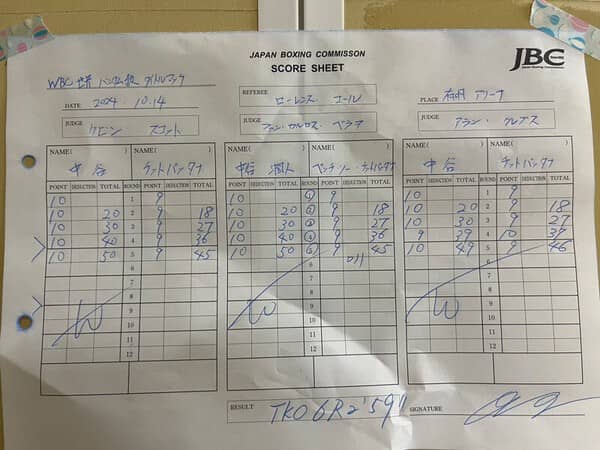 JAPAN BOXING COMMISSON
SCORE SHEET
JBC
Japan Boxing Commission
WBC 世界 バンタム級 タイトルマッチ
DATE 2024. 10.14
REFEREE ローレンス コール
PLACE 有明 アリーナ
JUDGE ケビン スコット
JUDGE ファン・カルロス・ペラヨ
JUDGE アラン・クレブス
NAME( ) NAME( ) NAME( ) NAME( ) NAME( ) NAME( )
中谷 ペットバンタナ 中谷 潤人 ペッチ・ソー・チットパッタナ 中谷 チットパンタナ
POINT DEDUCTION TOTAL ROUND POINT DEDUCTION TOTAL POINT DEDUCTION TOTAL ROUND POINT DEDUCTION TOTAL POINT DEDUCTION TOTAL ROUND POINT DEDUCTION TOTAL
10 1 9 10 1 9 10 1 9
10 20 2 9 18 10 20 2 9 18 10 20 2 9 18
10 30 3 9 27 10 30 3 9 27 10 30 3 9 27
10 40 4 9 36 10 40 4 9 36 9 39 4 10 37
10 50 5 9 45 10 50 5 9 45 10 49 5 9 46
6 6 6
7 7 7
8 8 8
W 9 W 9 W 9
10 10 10
11 11 11
12 12 12
RESULT TKO 6R 2'59"
SIGNATURE